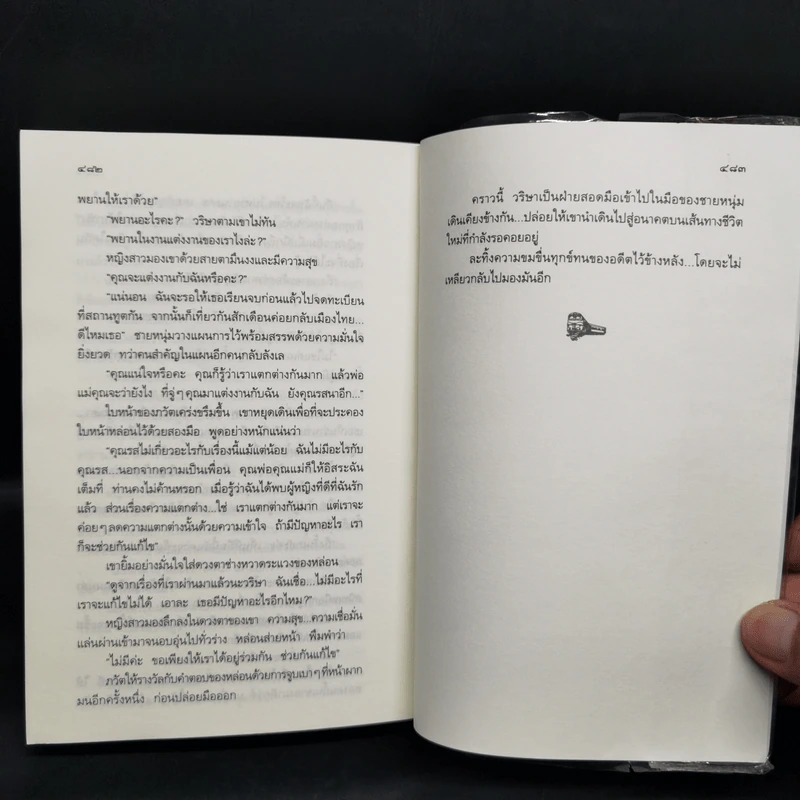 ๔๘๒
พยานให้เราด้วย”
“พยานอะไรคะ?” วริษาตามเขาไม่ทัน
“พยานในงานแต่งงานของเราไงล่ะ?”
หญิงสาวมองเขาด้วยสายตามึนงงและมีความสุข
“คุณจะแต่งงานกับฉันหรือคะ?”
“แน่นอน ฉันจะรอให้เธอเรียนจบก่อนแล้วไปจดทะเบียน
ที่สถานทูตกัน จากนั้นก็เที่ยวกันสักเดือนค่อยกลับเมืองไทย...
ดีไหมเธอ” ชายหนุ่มวางแผนการไว้พร้อมสรรพด้วยความมั่นใจ
ยิ่งยวด ทว่าคนสำคัญในแผนอีกคนกลับลังเล
“คุณแน่ใจหรือคะ คุณก็รู้ว่าเราแตกต่างกันมาก แล้วพ่อ
แม่คุณจะว่ายังไง ที่จู่ๆคุณมาแต่งงานกับฉัน ยังคุณรสนาอีก...”
ใบหน้าของภวัตเคร่งขรึมขึ้น เขาหยุดเดินเพื่อที่จะประคอง
ใบหน้าหล่อนไว้ด้วยสองมือ พูดอย่างหนักแน่นว่า
“คุณรสไม่เกี่ยวอะไรกับเรื่องนี้แม้แต่น้อย ฉันไม่มีอะไรกับ
คุณรส...นอกจากความเป็นเพื่อน คุณพ่อคุณแม่ก็ให้อิสระฉัน
เต็มที่ ท่านคงไม่ค้านหรอก เมื่อรู้ว่าฉันได้พบผู้หญิงที่ดีที่ฉันรัก
แล้ว ส่วนเรื่องความแตกต่าง...ใช่ เราแตกต่างกันมาก แต่เราจะ
ค่อยๆลดความแตกต่างนั้นด้วยความเข้าใจ ถ้ามีปัญหาอะไร เรา
ก็จะช่วยกันแก้ไข”
เขายิ้มอย่างมั่นใจใส่ดวงตาช่างหวาดระแวงของหล่อน
“ดูจากเรื่องที่เราผ่านมาแล้วนะวริษา ฉันเชื่อ...ไม่มีอะไรที่
เราจะแก้ไขไม่ได้ เอาละ เธอมีปัญหาอะไรอีกไหม?”
หญิงสาวมองลึกลงในดวงตาของเขา ความสุข...ความเชื่อมั่น
แล่นผ่านเข้ามาจนอบอุ่นไปทั่วร่าง หล่อนส่ายหน้า พึมพำว่า
“ไม่มีค่ะ ขอเพียงให้เราได้อยู่ร่วมกัน ช่วยกันแก้ไข”
ภวัตให้รางวัลกับคำตอบของหล่อนด้วยการจูบเบาๆที่หน้าผาก
มนอีกครั้งหนึ่ง ก่อนปล่อยมือออก
๔๘๓
คราวนี้ วริษาเป็นฝ่ายสอดมือเข้าไปในมือของชายหนุ่ม
เดินเคียงข้างกัน...ปล่อยให้เขานำเดินไปสู่อนาคตบนเส้นทางชีวิต
ใหม่ที่กำลังรอคอยอยู่
ละทิ้งความขมขื่นทุกข์ทนของอดีตไว้ข้างหลัง...โดยจะไม่
เหลียวกลับไปมองมันอีก